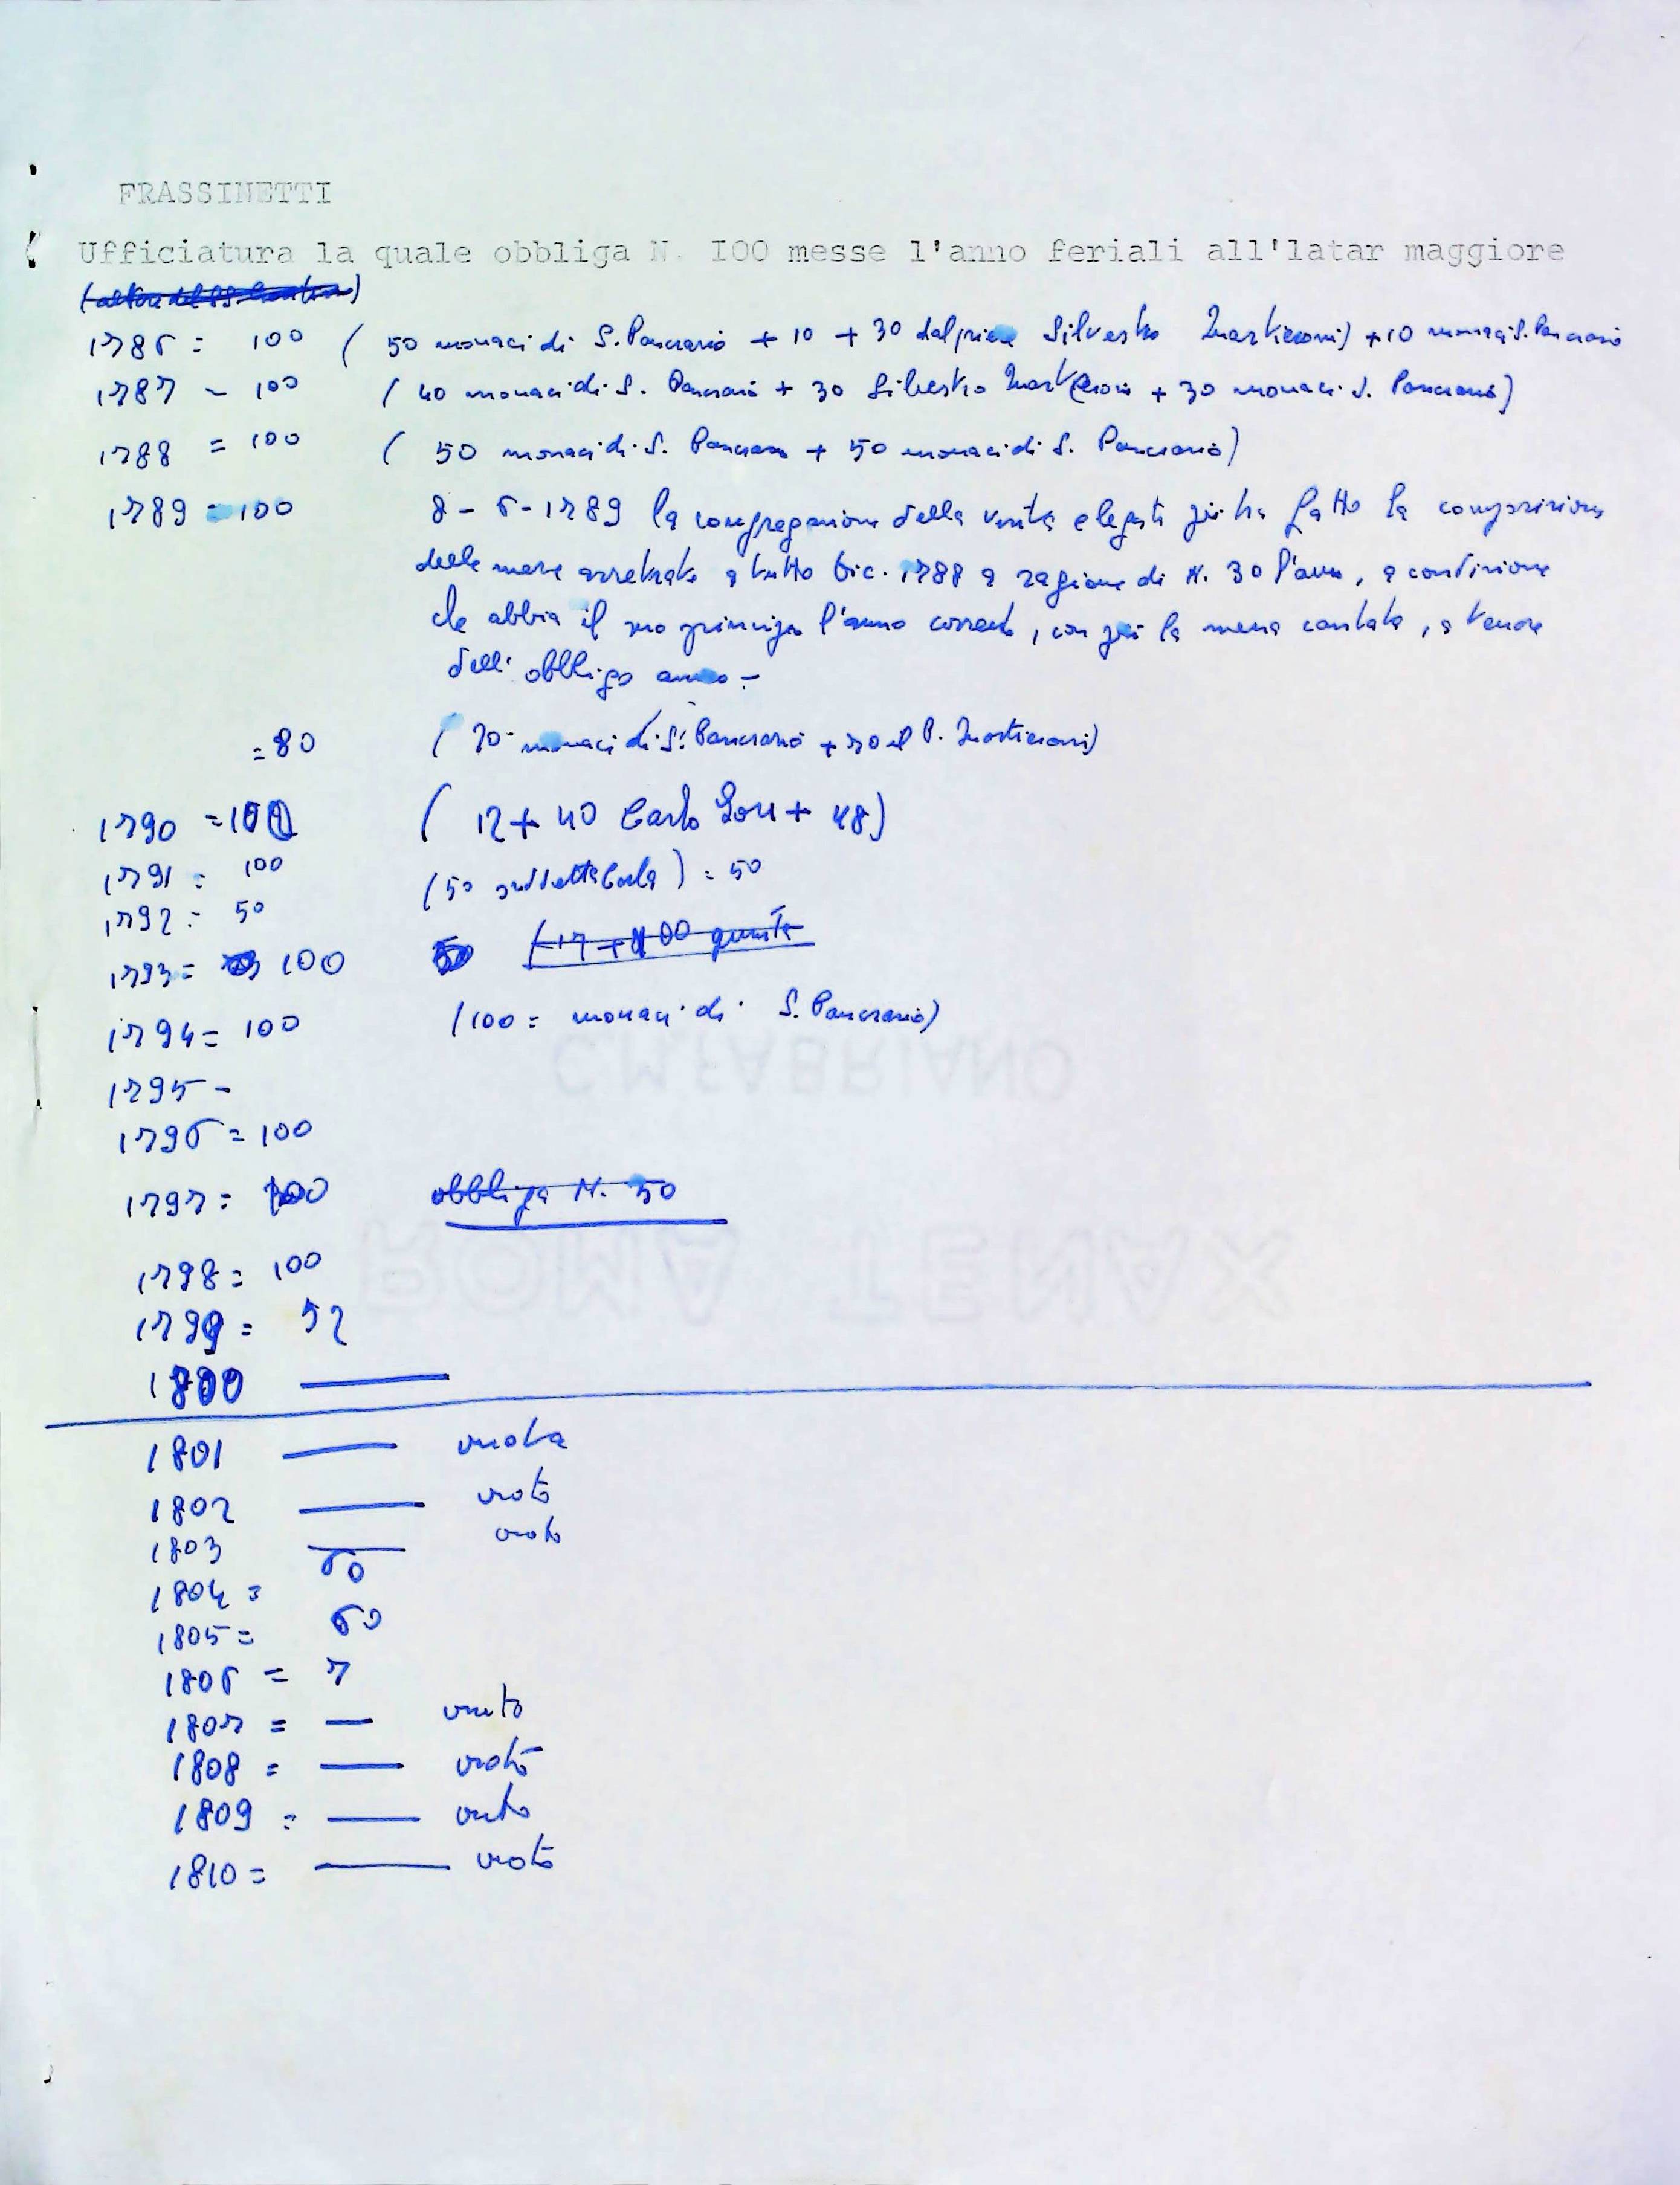 FRASSINETTI
Ufficiatura la quale obbliga N. I00 messe l'anno feriali all'latar maggiore
1786 = 100 ( 50 monaci di S. Pancrazio + 10 + 30 dal priore Silvestro Marticcioni) + 10 monaci S. Pancrazio
1787 - 100 ( 40 monaci di S. Pancrazio + 30 Silvestro + 30 monaci S. Pancrazio)
1788 = 100 ( 50 monaci di S. Pancrazio + 50 monaci di S. Pancrazio)
1789 = 100 8 - 6 - 1789 la congregazione della visita e legati pii ha fatto la composizione
delle messe arretrate a tutto Dic. 1788 a ragione di N. 30 l'anno, a condizione
che abbia il suo principio l'anno corrente, con più la messa cantata, a tenore
dell' obbligo annuo -
= 80 ( monaci di S. Pancrazio + il P. Marticcioni)
1790 = 100 ( 12 + 40 Carlo + 48)
1791 = 100 (50 suddetto Carlo) = 50
1792 = 50
1793 = 100 50
1794 = 100 (100 = monaci di S. Pancrazio)
1795 -
1796 = 100
1797 = 100 obbliga N. 50
1798 = 100
1799 = 52
1800 —
1801 — vuota
1802 — vuoto
1803 — vuoto
1804 = 60
1805 = 60
1806 = 7
1807 = — vuoto
1808 = — vuoto
1809 = — vuoto
1810 = — vuoto
C.M.FABRIANO
ROMA TENAX